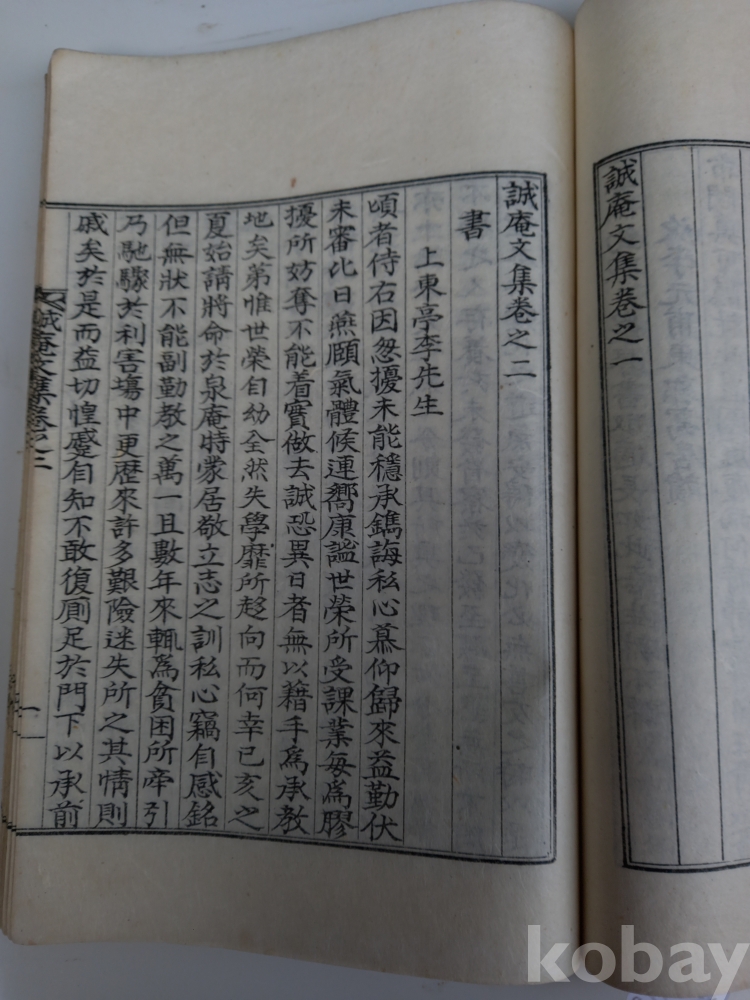 誠庵文集卷之一
誠庵文集卷之二
書
上東亭李先生
頃者侍右因怱擾未能穩承鐫誨私心慕仰歸來益勤伏
未審比日燕頤氣體候連嚮康謐世榮所受課業每爲膠
擾所妨奪不能着實做去誠恐異日者無以藉手爲承教
地矣第惟世榮自幼全然失學靡所趍向而何幸已亥之
夏始請將命於泉庵時蒙居敬立志之訓私心竊自感銘
但無狀不能副勤教之萬一且數年來輒爲貧困所牽引
乃馳驟於利害場中更歷來許多艱險迷失所之其情則
戚矣於是而益切惶蹙自知不敢復厠足於門下以承前
誠庵文集卷之二
一
kobay